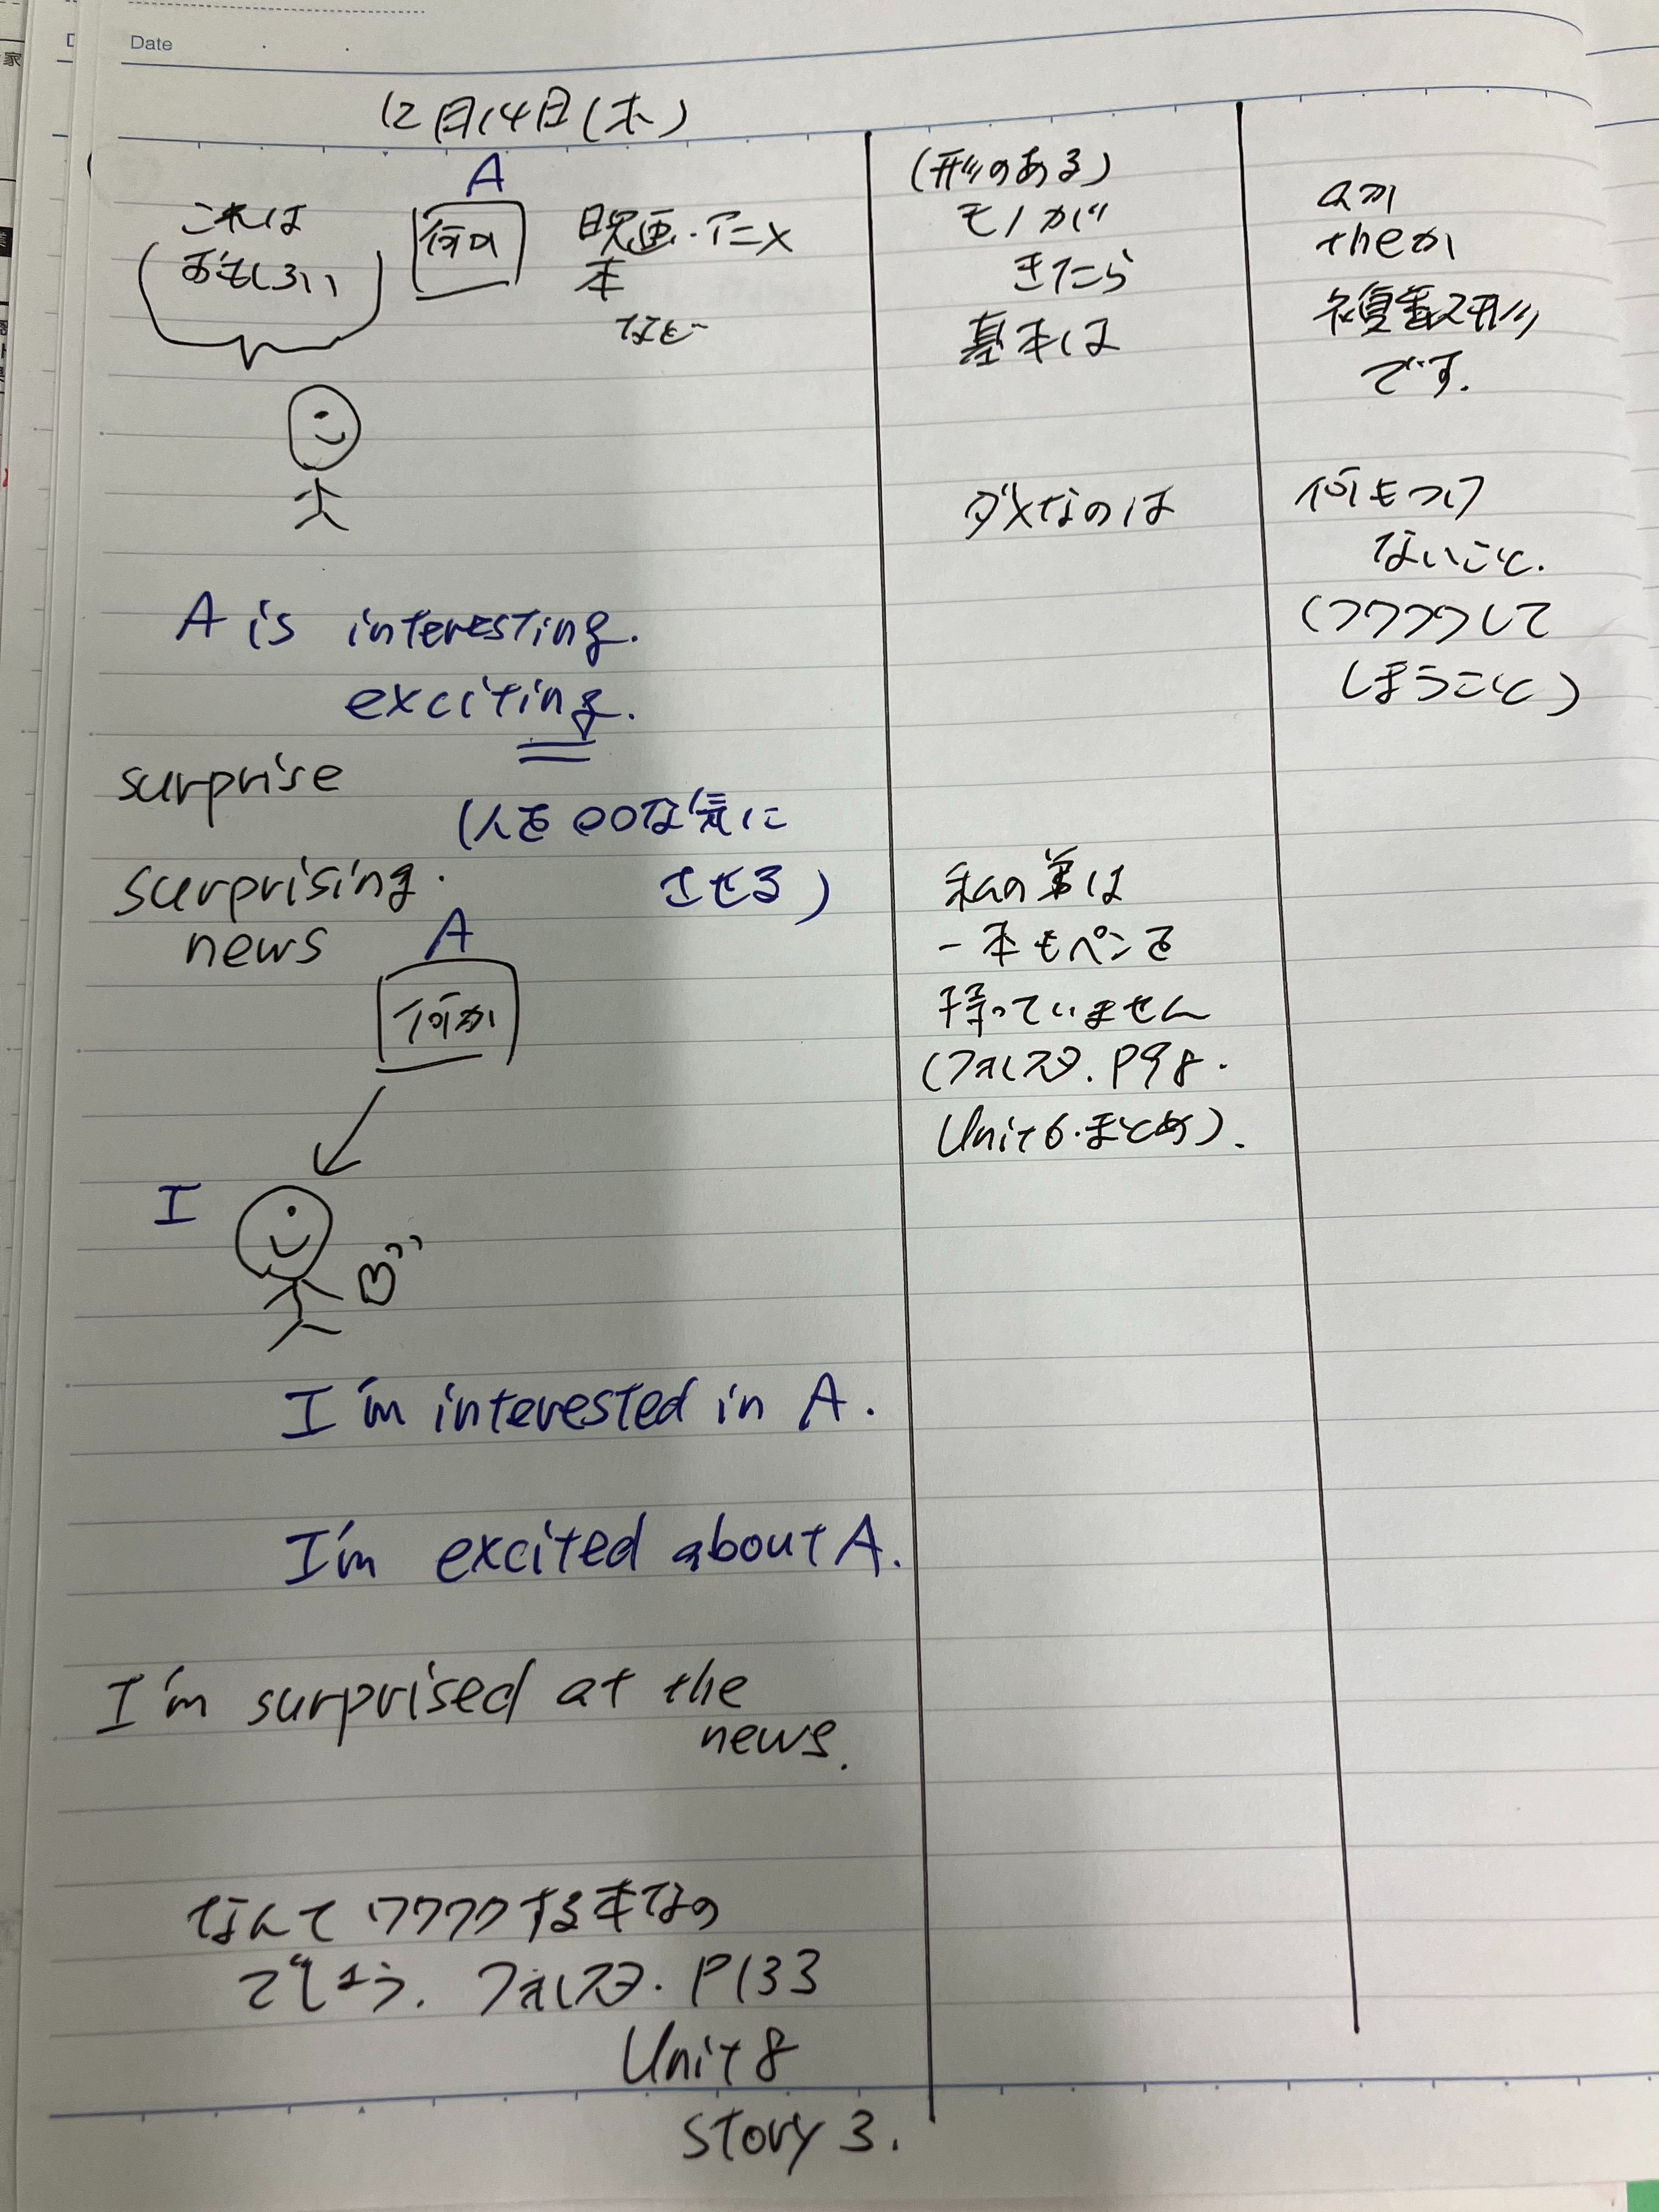 Date
12月14日(木)
A
これは
おもしろい
何か
映画・アニメ
本
など
A is interesting.
exciting.
surprise
(人を〇〇な気に
させる)
surprising.
news
A
何か
I
I'm interested in A.
I'm excited about A.
I'm surprised at the
news.
なんてワクワクする本なの
でしょう. フォレスタ. P133
Unit 8
Story 3.
(形のある)
モノが
きたら
基本は
ダメなのは
私の弟は
一本もペンを
持っていません
(フォレスタ. P98.
Unit6.まとめ).
aか
theか
複数形
です.
何もつけ
ないこと.
(フワフワして
しまうこと)